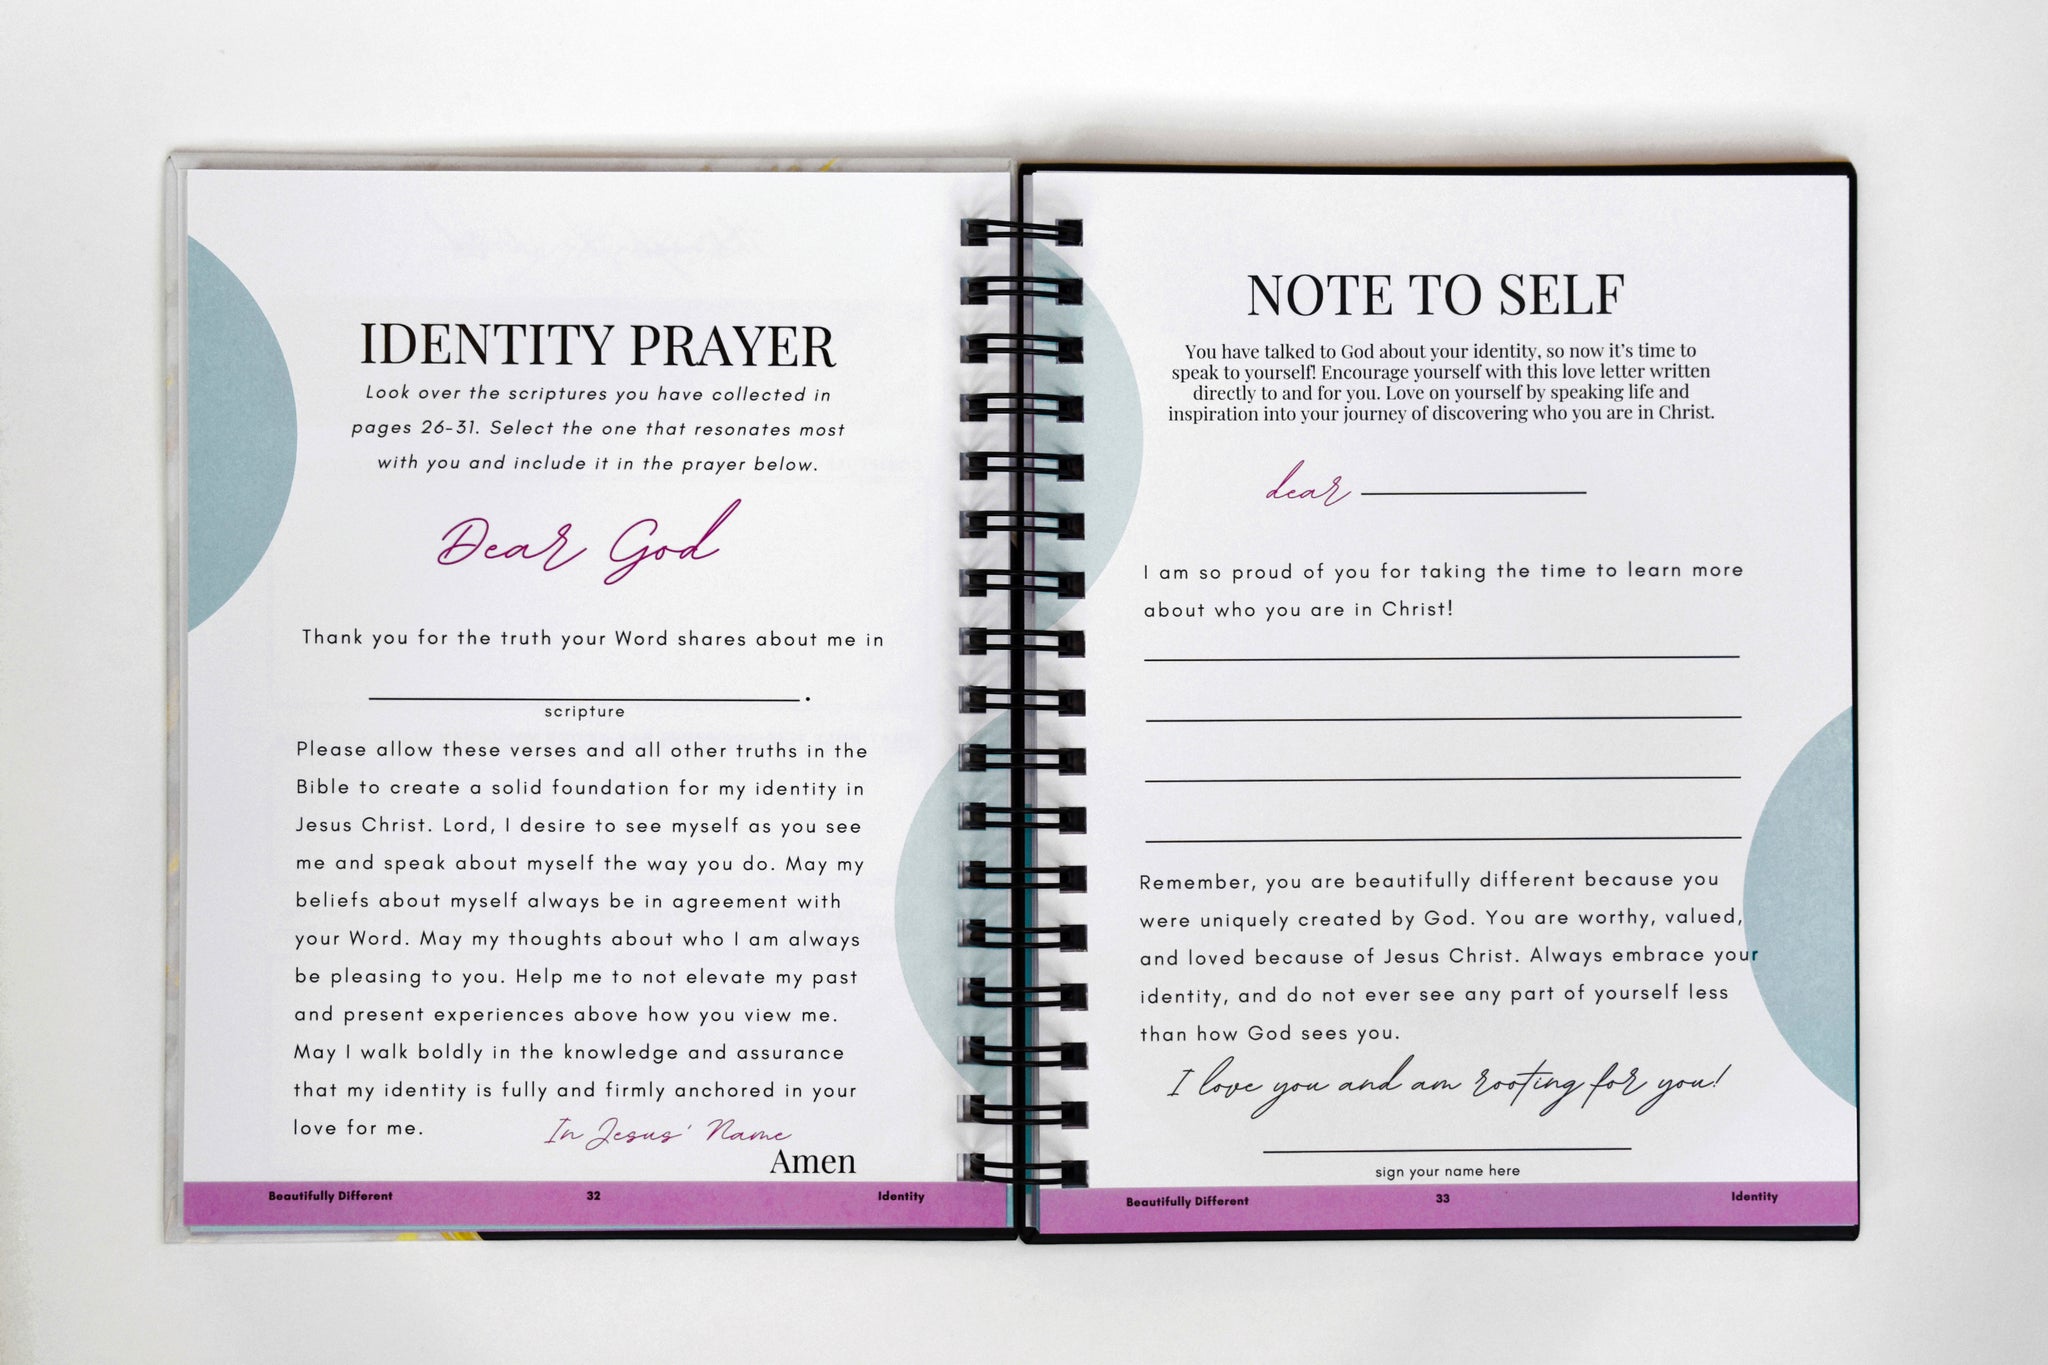 IDENTITY PRAYER
Look over the scriptures you have collected in
pages 26-31. Select the one that resonates most
with you and include it in the prayer below.
Dear God
Thank you for the truth your Word shares about me in
.
scripture
Please allow these verses and all other truths in the
Bible to create a solid foundation for my identity in
Jesus Christ. Lord, I desire to see myself as you see
me and speak about myself the way you do. May my
beliefs about myself always be in agreement with
your Word. May my thoughts about who I am always
be pleasing to you. Help me to not elevate my past
and present experiences above how you view me.
May I walk boldly in the knowledge and assurance
that my identity is fully and firmly anchored in your
love for me.
In Jesus' Name
Amen
Beautifully Different 32 Identity
NOTE TO SELF
You have talked to God about your identity, so now it's time to
speak to yourself! Encourage yourself with this love letter written
directly to and for you. Love on yourself by speaking life and
inspiration into your journey of discovering who you are in Christ.
dear
I am so proud of you for taking the time to learn more
about who you are in Christ!
Remember, you are beautifully different because you
were uniquely created by God. You are worthy, valued,
and loved because of Jesus Christ. Always embrace your
identity, and do not ever see any part of yourself less
than how God sees you.
I love you and am rooting for you!
sign your name here
Beautifully Different 33 Identity